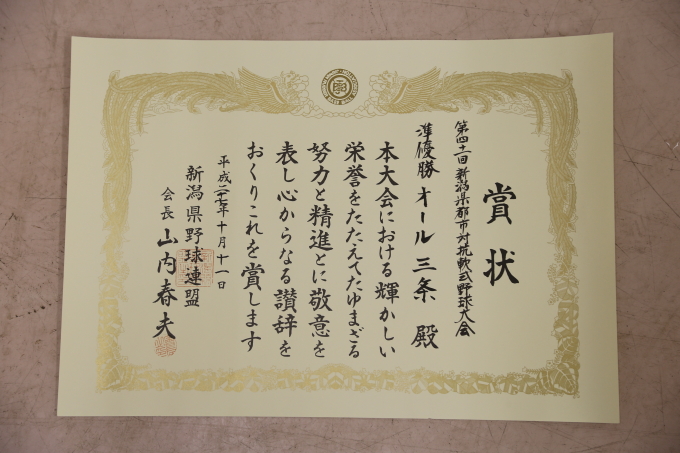 賞状
第四十一回 新潟県都市対抗軟式野球大会
準優勝 オール三条 殿
本大会における輝かしい
栄誉をたたえてたゆまざる
努力と精進とに敬意を
表し心からなる讃辞を
おくりこれを賞します
平成二十七年十月十一日
新潟県野球連盟
会長 山内春夫